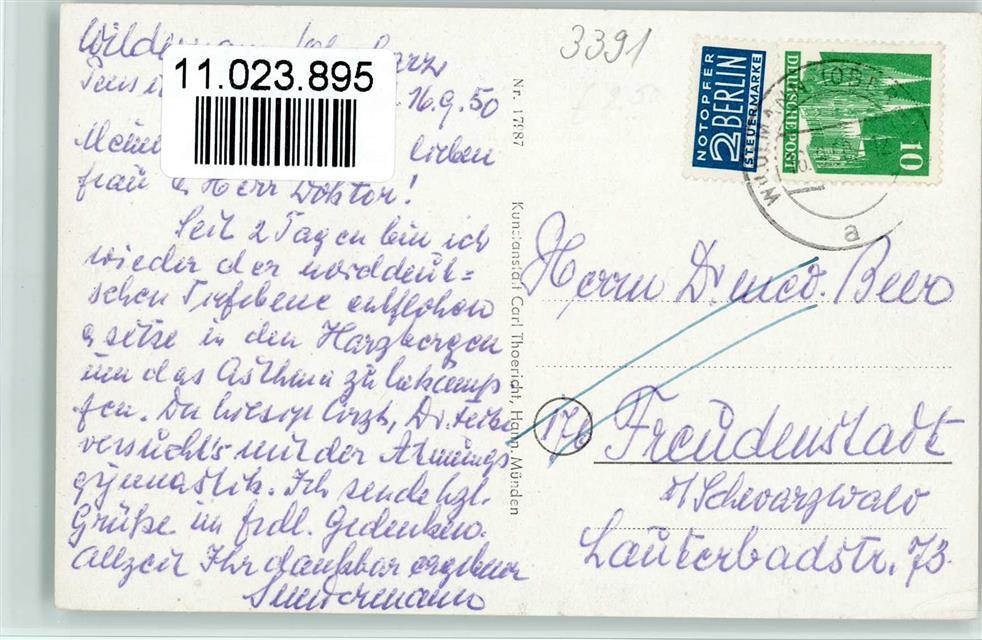 Wildemann Harz
16.9.50
11.023.895
lieben
Frau & Herr Doktor!
Seit 2 Tagen bin ich
wieder der norddeut=
schen Tiefebene entflohen
& sitze in den Harzbergen
um das Asthma zu bekämp
fen. Der hiesige Arzt, Dr.
versucht's mit der Atmungs
gymnastik. Ich sende hzl.
Grüße im frdl. Gedenken.
Allzeit Ihr dankbar ergebener
Nr. 17987
Kunstanstalt Carl Thoericht, Hann. Münden
3391
NOTOPFER
2 BERLIN
STEUERMARKE
DEUTSCHE POST
10
WILDEMANN (OBERHARZ)
a
Herrn Dr. med. Beer
17b
Freudenstadt
i/Schwarzwald
Lauterbadstr. 73.